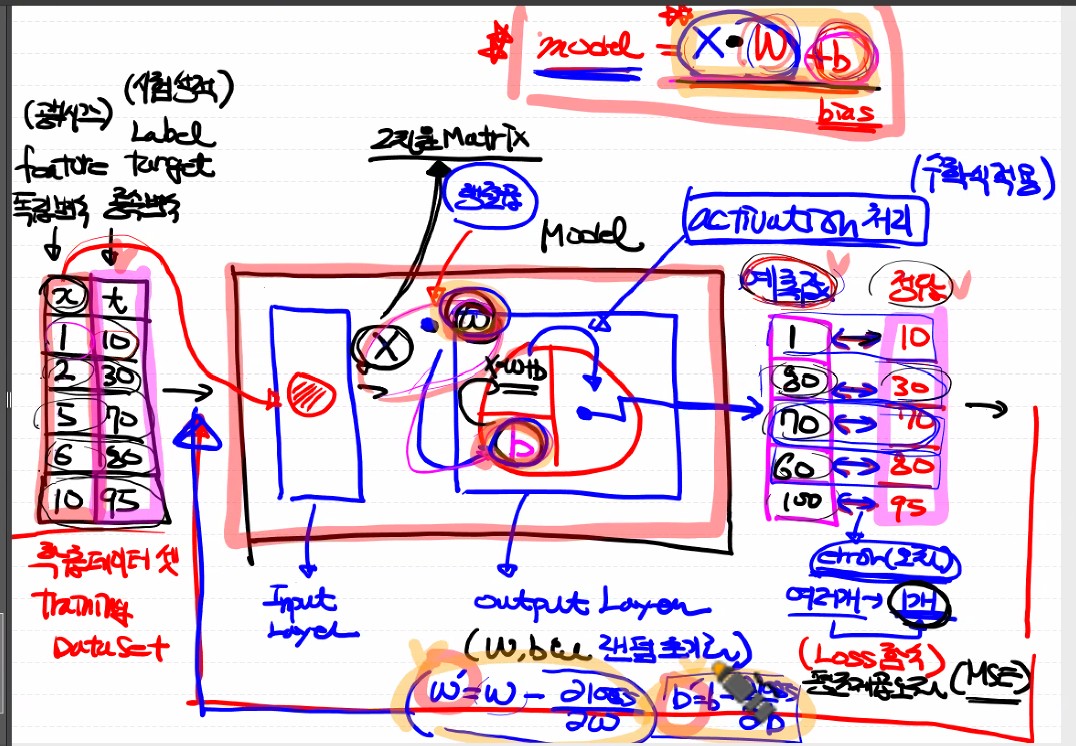 model = X • W + b
bias
(공부시간) (시험성적)
Label
feature target
독립변수 종속변수
2차원 Matrix
행렬곱
Model
activation 처리
(수학식 적용)
x t
1 10
2 30
5 70
6 80
10 95
X
W
X•W+b
b
예측값 정답
1 10
80 30
70 70
60 80
100 95
error(오차)
여러개→ 1개
(Loss 함수)
평균제곱오차 (MSE)
학습데이터 셋
Training
DataSet
Input
Layer
output Layer
(W, b는 랜덤초기화)
W' = W - ∂loss/∂W
b' = b - ∂loss/∂b